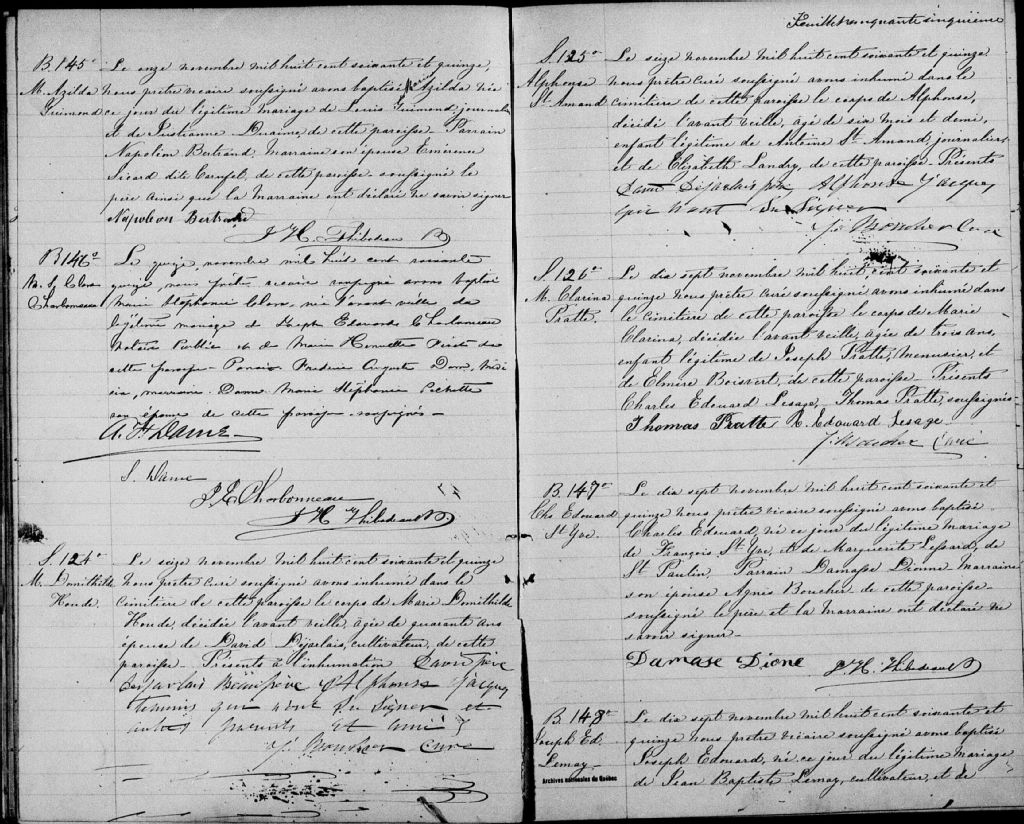 B. 145e
M. Azilda
Guimond
Le onze novembre mil huit cent soixante et quinze,
nous prêtre vicaire soussigné avons baptisé Marie Azilda née
ce jour du légitime mariage de Louis Guimond, journalier
et de Justianne Duaime de cette paroisse. Parrain
Napoléon Bertrand, Marraine son épouse Emérence
Sicard dite Carufel, de cette paroisse soussigné le
père ainsi que la Marraine ont déclaré ne savoir signer
Napoleon Bertrand
J. H. Thibodeau
B 146e
M. S. Clara
Charbonneau
Le quinze, novembre mil huit cent soixante
quinze, nous prêtre vicaire soussigné avons baptisé
Marie Stéphanie Clara, née l'avant veille du
légitime mariage de Joseph Edmond Charbonneau
Notaire Public et de Marie Henriette de
cette paroisse. Parrain Frederic Auguste Dame, Méde-
cin, marraine Dame Marie Stéphanie Pichette
son épouse de cette paroisse soussignés
A. F. Dame
S. Dame
J. E. Charbonneau
J H Thibodeault
S. 124e
M. Domithilde
Houde.
Le seize novembre mil huit cent soixante et quinze
nous prêtre curé soussigné avons inhumé dans le
cimitière de cette paroisse le corps de Marie Domithilde
Houde, décidée l'avant veille, agée de quarante ans
épouse de David Déjarlais, cultivateur, de cette
paroisse. Présents à l'inhumation David père
Desjarlais Beaupère et Alphonse Jacques
temoins qui n'ont su signer et
autres parents et amis
Js. Moncher Curé
Feuillet cinquante cinquième
S. 125e
Alphonse
St. Amand
Le seize novembre mil huit cent soixante et quinze
nous prêtre curé soussigné avons inhumé dans le
cimitière de cette paroisse le corps de Alphonse,
décidé l'avant veille, agé de six mois et demi,
enfant légitime de Antoine St. Amand, journalier,
et de Elizabeth Landry, de cette paroisse. Présents
David Desjarlais père Alphonse Jacques
qui n'ont su signer
Js. Moncher Curé
S. 126e
M. Clarina
Pratte.
Le dix sept novembre mil huit cent soixante et
quinze nous prêtre curé soussigné avons inhumé dans
le cimitière de cette paroisse le corps de Marie
Clarina, décidée l'avant veille, agée de trois ans,
enfant légitime de Joseph Pratte, menusier, et
de Elmire Boisvert, de cette paroisse. Présents
Charles Edouard Lesage, Thomas Pratte, soussignés
Thomas Pratte C. Edouard Lesage
J. Moncher Curé
B. 147e
Chs. Edouard
St Yve.
Le dix sept novembre mil huit cent soixante et
quinze nous prêtre vicaire soussigné avons baptisé
Charles Edouard, né ce jour du légitime mariage
de François St Yve, et de Marguerite Lessard, de
St Paulin, Parrain Damasse Dionne marraine
son épouse Agnés Boucher de cette paroisse
soussigné le père et la Marraine ont déclaré ne
savoir signer.
Damase Dione
J. H. Thibodeault
B. 148e
Joseph Ed.
Lemay.
Archives nationales du Québec
Le dix sept novembre mil huit cent soixante et
quinze nous prêtre vicaire soussigné avons baptisé
Joseph Edouard, né ce jour du légitime mariage
de Jean Baptiste Lemay, cultivateur, et de